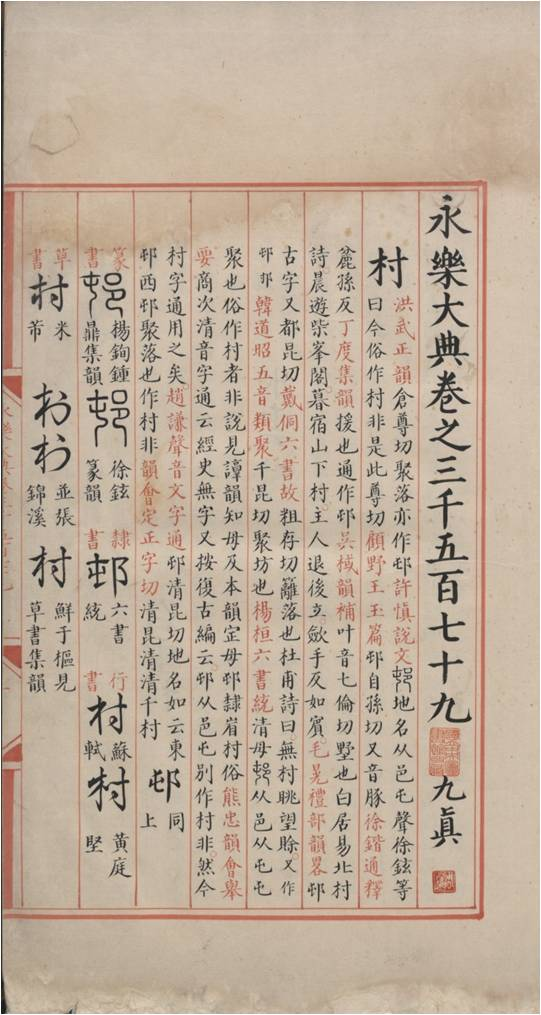 永樂大典卷之三千五百七十九 九真
村 洪武正韻倉尊切聚落亦作邨許慎說文邨地名从邑屯聲徐鉉等
曰今俗作村非是此尊切顧野王玉篇邨自孫切又音豚徐鍇通釋
麄孫反丁度集韻援也通作邨吳棫韻補叶音七倫切墅也白居易北村
詩晨遊紫峯閣暮宿山下村主人退後立歛手反如賓毛晃禮部韻畧邨
古字又都昆切戴侗六書故粗存切籬落也杜甫詩曰無村眺望賒又作
邨 韓道昭五音類聚千昆切聚坊也楊桓六書統清母邨从邑从屯屯
聚也俗作村者非說見諄韻知母及本韻定母邨隸省村俗熊忠韻會舉
要商次清音字通云經史無字又按復古編云邨从邑屯別作村非然今
村字通用之矣趙謙聲音文字通邨清昆切地名如云東
邨西邨聚落也作村非韻會定正字切清昆清清千村
邨 同上
篆書 邨 楊鉤鍾鼎集韻 邨 徐鉉篆韻 隸書 邨 六書統 行書 村 蘇軾 村 黃庭堅
草書 村 米芾 村村 並張錦溪 村 鮮于樞見草書集韻